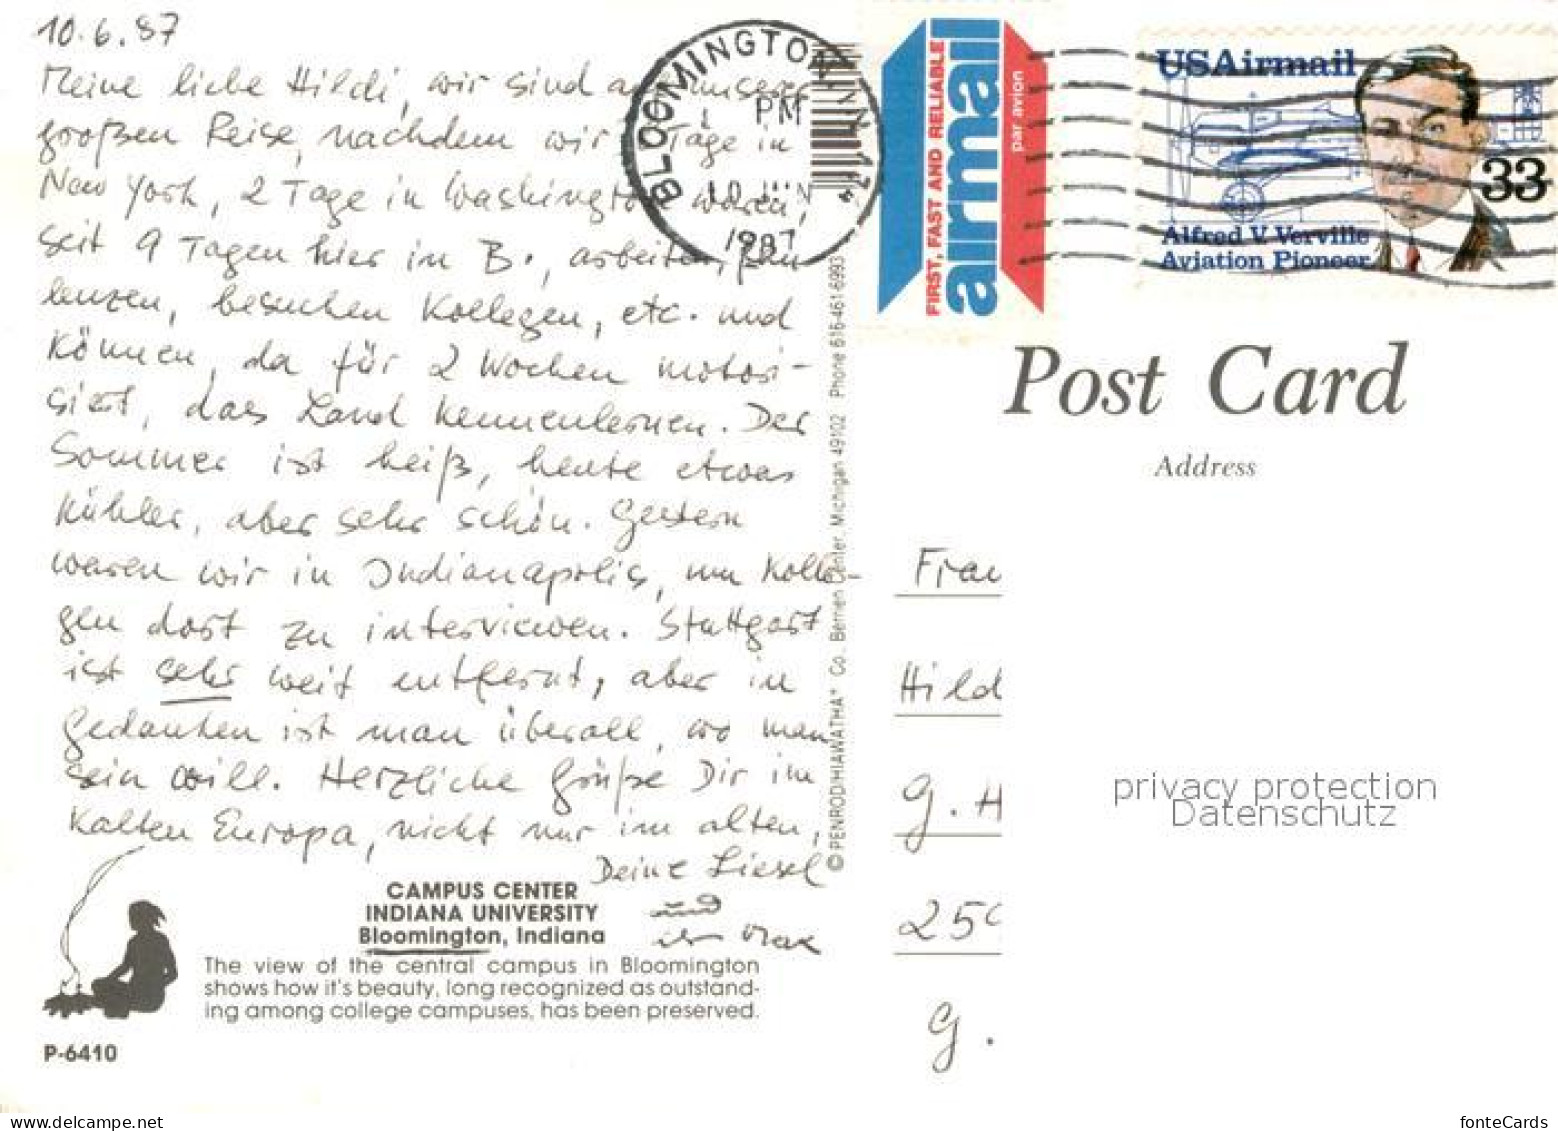 10.6.87
Meine liebe Hildi, wir sind auf unserer
großen Reise, nachdem wir Tage in
New York, 2 Tage in Washington waren,
seit 9 Tagen hier in B., arbeiten,
lenzen, besuchen Kollegen, etc. und
können, da für 2 Wochen motori-
siert, das Land kennenlernen. Der
Sommer ist heiß, heute etwas
kühler, aber sehr schön. Gestern
waren wir in Indianapolis, um Kolle-
gen dort zu interviewen. Stuttgart
ist sehr weit entfernt, aber in
Gedanken ist man überall, wo man
sein will. Herzliche Grüße Dir im
kalten Europa, nicht nur im alten,
Deine Liesel
und
ihr Max
CAMPUS CENTER
INDIANA UNIVERSITY
Bloomington, Indiana
The view of the central campus in Bloomington
shows how it's beauty, long recognized as outstand-
ing among college campuses, has been preserved.
P-6410
©PENRODIHIAWATHA* Co., Berrien Center, Michigan 49102 Phone 616-461-6993
BLOOMINGTON, IN 474
PM
10 JUN
1987
FIRST, FAST AND RELIABLE
airmail
par avion
USAirmail
33
Alfred V. Verville
Aviation Pioneer
Post Card
Address
Frau
Hild
G. H
25
G.
privacy protection
Datenschutz
fonteCards